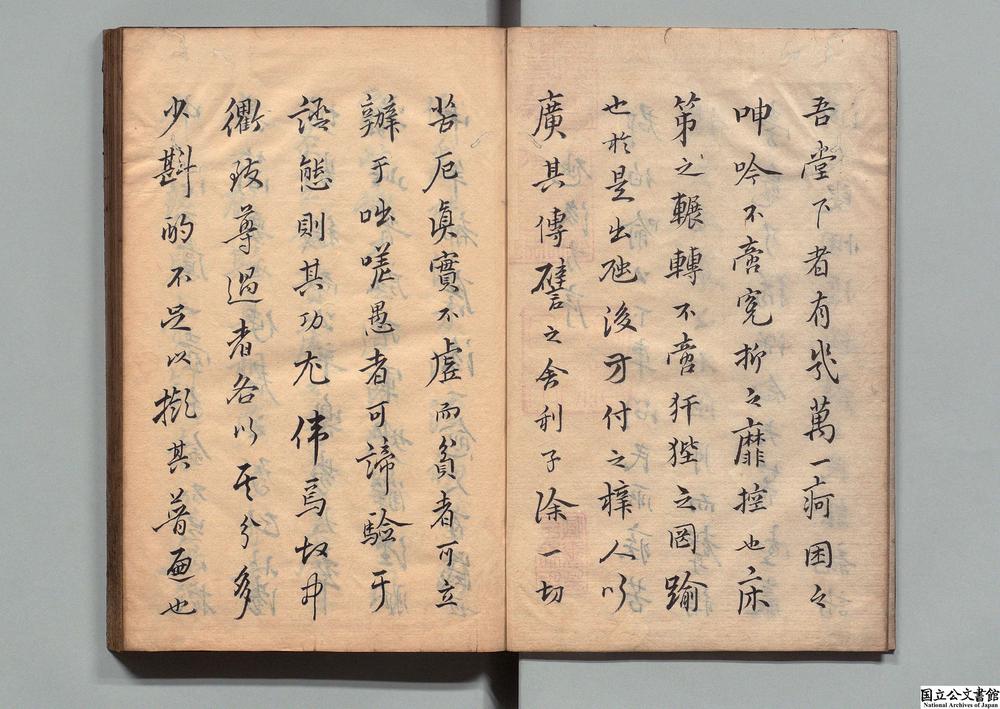 吾堂下者有幾萬一疴困之
呻吟不啻冤抑之靡控也床
第之輾轉不啻犴狴之罔踰
也於是出砂後方付之梓人以
廣其傳譬之舍利子除一切
苦厄眞實不虛而貧者可立
辦于咄嗟愚者可諦驗于
證態則其功尤偉焉
衢致尊過者各以其分多
少斟酌不足以擬其普遍也
国立公文書館
National Archives of Japan